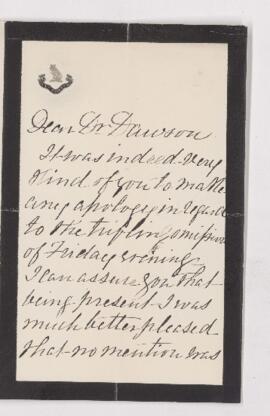 Dear Dr. Dawson
It was indeed very
kind of you to make
any apology in regard
to the trifling omission
of Friday evening
I can assure you that
being present I was
much better pleased
that no mention was